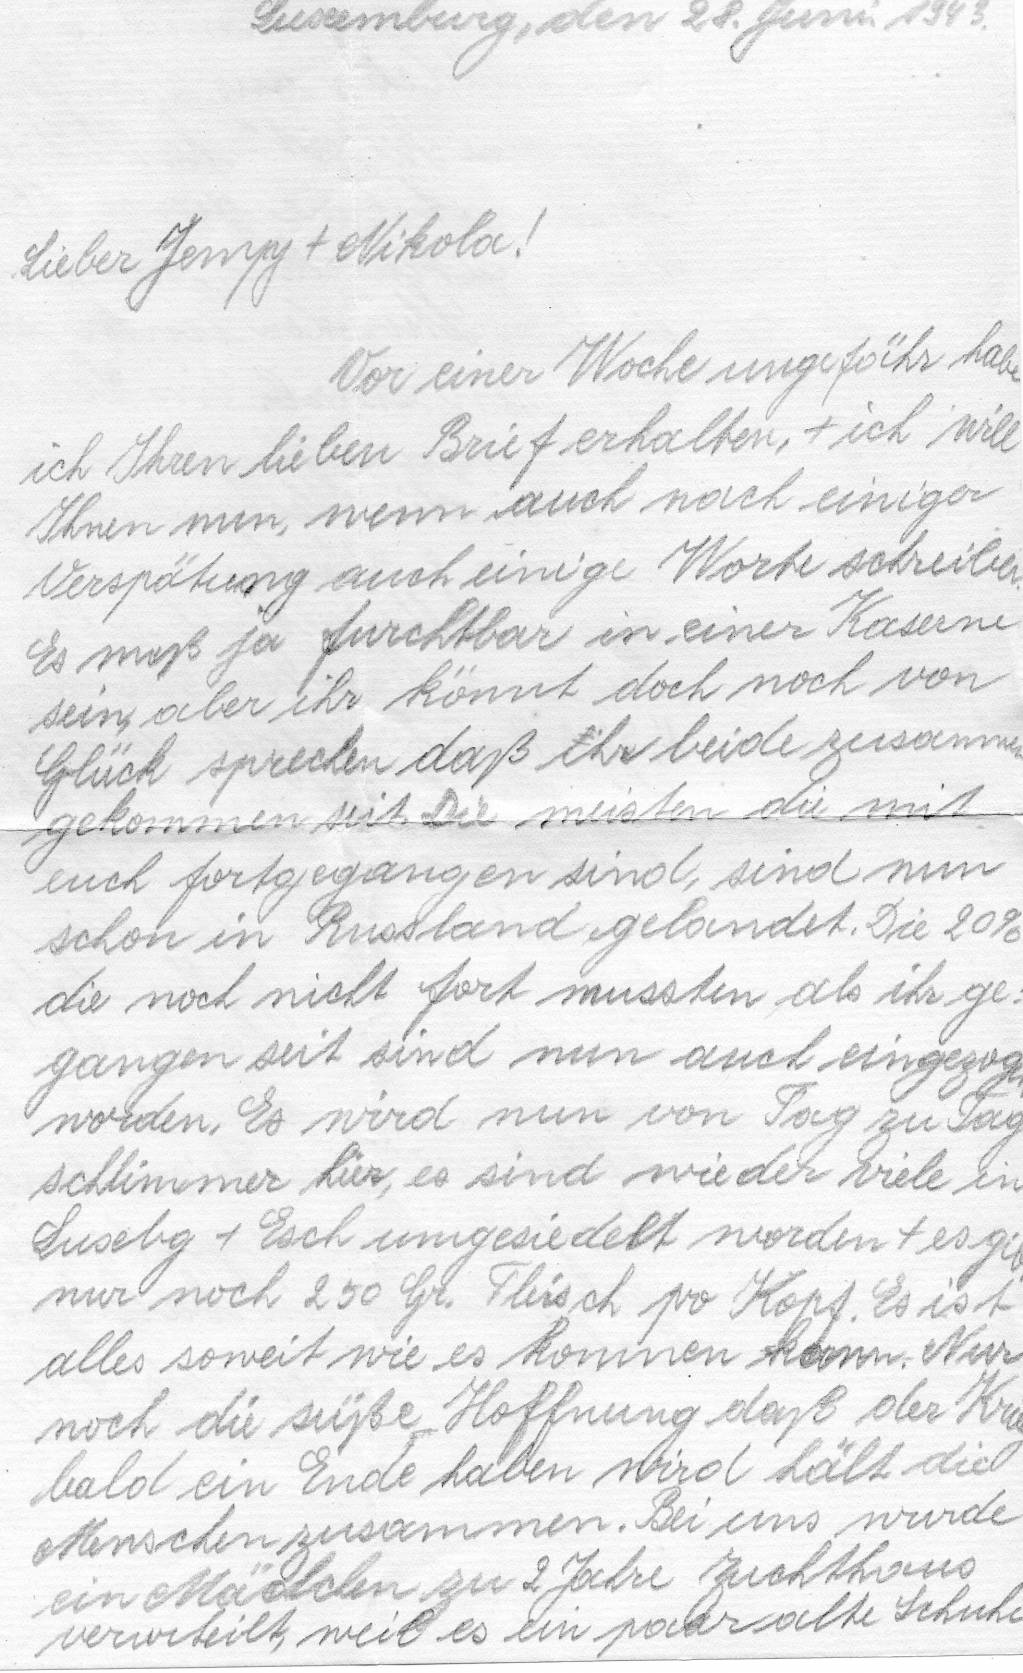 Luxemburg, den 28. Juni 1943.
Lieber Jempy + Nikola!
Vor einer Woche ungefähr habe
ich Ihren lieben Brief erhalten, + ich will
Ihnen nun, wenn auch nach einiger
Verspätung auch einige Worte schreiben.
Es muß ja furchtbar in einer Kaserne
sein, aber ihr könnt doch noch von
Glück sprechen daß ihr beide zusammen
gekommen seit. Die meisten die mit
euch fortgegangen sind, sind nun
schon in Russland gelandet. Die 20%
die noch nicht fort mussten als ihr ge:
gangen seit sind nun auch eingezogen
worden. Es wird nun von Tag zu Tag
schlimmer hier, es sind wieder viele in
Luxebg + Esch umgesiedelt worden + es gib
nur noch 250 Gr. Fleisch pro Kopf. Es ist
alles soweit wie es kommen kann. Nur
noch die süße Hoffnung daß der Krieg
bald ein Ende haben wird hält die
Menschen zusammen. Bei uns wurde
ein Mädchen zu 2 Jahre Zuchthaus
verurteilt, weil es ein paar alte Schuhe